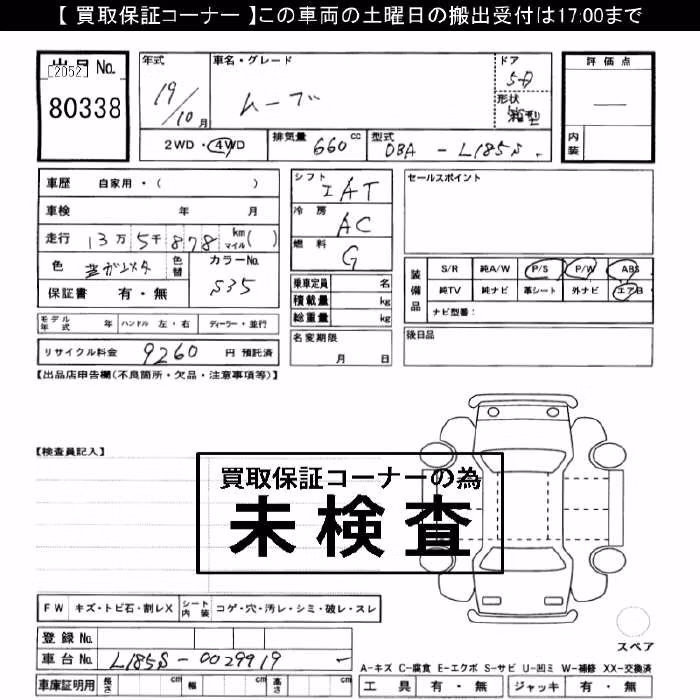 【 買取保証コーナー 】この車両の土曜日の搬出受付は17:00まで
出品 No. [2052]
80338
年式 19/10月
車名・グレード ムーブ
ドア 5D
形状 箱型
評価点 —
内装
2WD・4WD
排気量 660 cc
型式 DBA - L185S
車歴 自家用・( )
車検 年 月
走行 13万 5千 878 km マイル( )
色
色替
カラーNo. S35
保証書 有・無
シフト IAT
冷房 AC
燃料 G
乗車定員 名
積載量 kg
総重量 kg
名変期限 月 日
セールスポイント
装備品
S/R 純A/W P/S P/W ABS
純TV 純ナビ 革シート 外ナビ エアB
ナビ型番:
後日品
モデル年式 年 ハンドル 左・右 ディーラー・並行
リサイクル料金 9260 円 預託済
【出品店申告欄(不良箇所・欠品・注意事項等)】
【検査員記入】
買取保証コーナーの為
未検査
FW キズ・トビ石・割レX シート内装 コゲ・穴・汚レ・シミ・破レ・スレ
登録 No.
車台 No. L185S-0029919
車庫証明用 長さ cm 幅 cm 高さ cm
スペア
A-キズ C-腐食 E-エクボ S-サビ U-凹ミ W-補修 XX-交換済
工具 有・無 ジャッキ 有・無